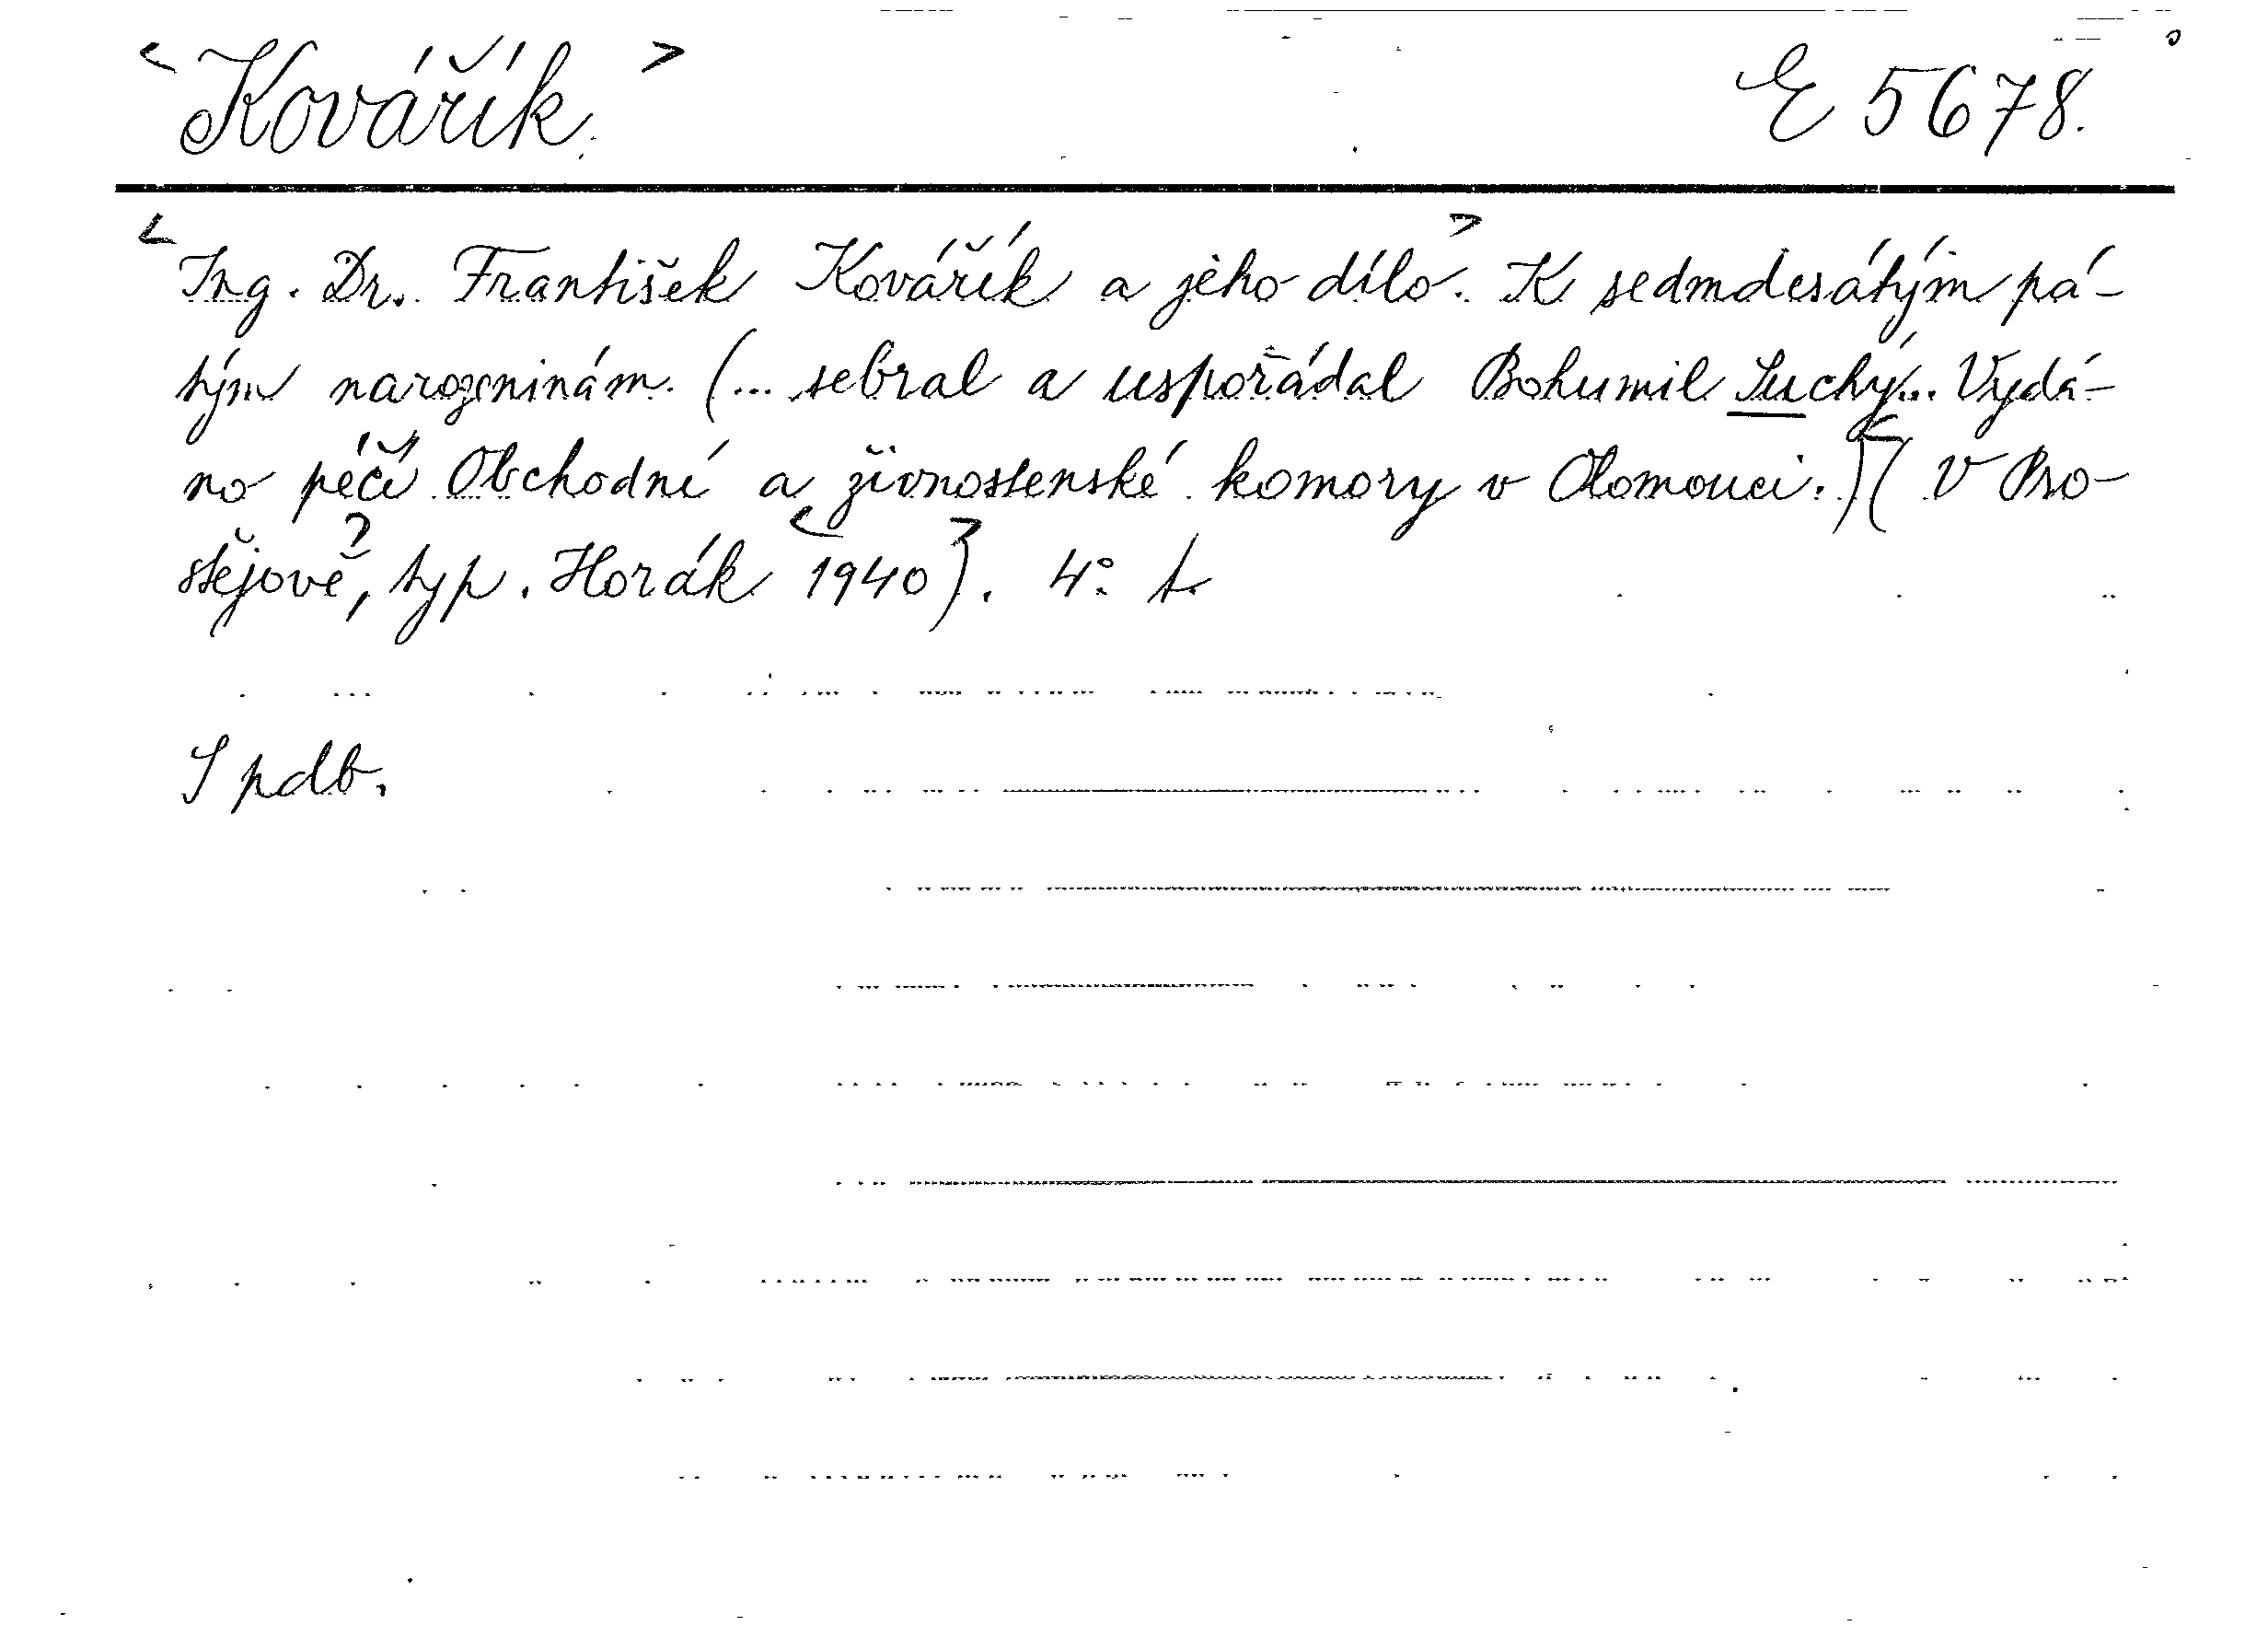 <Kovářík> E 5678.
<Ing. Dr. František Kovářík a jeho dílo>. K sedmdesátým pá-
tým narozeninám. (... sebral a uspořádal Bohumil Suchý... Vydá-
no péčí Obchodní a živnostenské komory v Olomouci.) <(V Pro-
stějově>, typ. Horák <1940>). 4°. t.
S pdb.